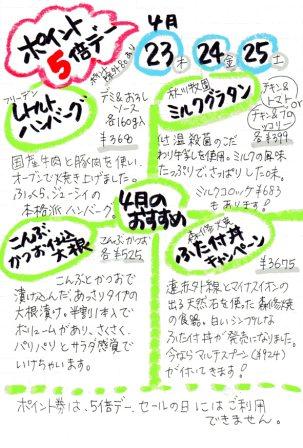 ポイント
5倍デー
ポイント除外もあり
4月
23木 24金 25土
フリーデン
レトルト
ハンバーグ
デミ&おろし
ソース
各160g入
¥368
国産牛肉と豚肉を使い、
オーブンで焼き上げました。
ふっくら、ジューシイの
本格派ハンバーグ。
秋川牧園
ミルクグラタン
チキン&
トマト
チキン&ブロ
ッコリー
各¥399
低温殺菌のこだ
わり牛乳を使用。ミルクの風味
たっぷりで、さっぱりした味。
ミルクコロッケ¥683
もあります!
4月の
おすすめ
こんぶ
かつお仕込
大根
こんぶ・かつお
各¥525
こんぶとかつおで
漬け込んだ、あっさりタイプの
大根漬け。半割1本入で
ボリュームがあり、さくさく、
パリパリとサラダ感覚で
いけちゃいます。
森修焼
ふた付丼
キャンペーン
¥3675
遠赤外線とマイナスイオンの
出る天然石を使った森修焼
の食器。白いシンプルな
ふた付丼が発売になりました。
今ならマルチスプーン(¥924)
が付いてきます!
ポイント券は、5倍デー、セールの日にはご利用
できません。